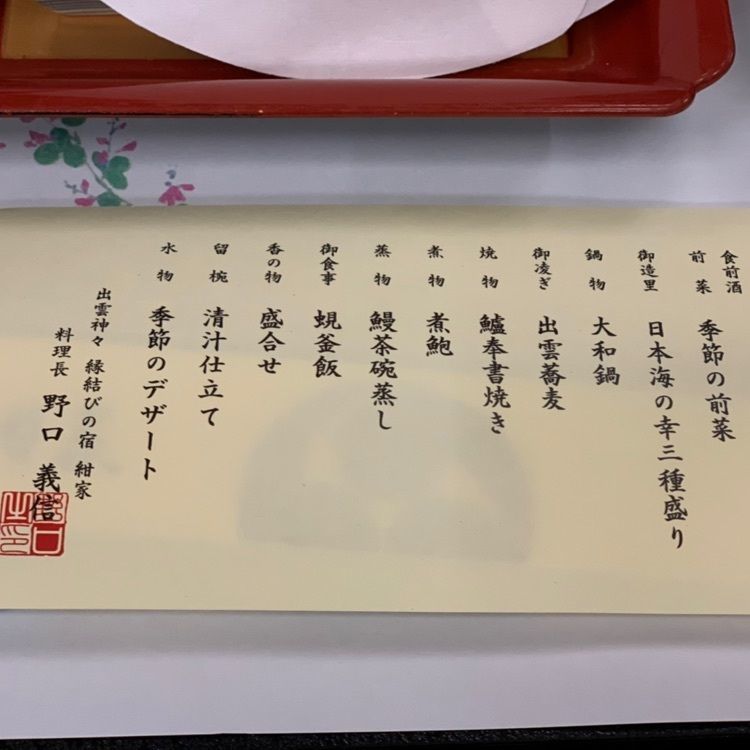 食前酒
前菜 季節の前菜
御造里 日本海の幸三種盛り
鍋物 大和鍋
御凌ぎ 出雲蕎麦
焼物 鱸奉書焼き
煮物 煮鮑
蒸物 鰻茶碗蒸し
御食事 蜆釜飯
香の物 盛合せ
留椀 清汁仕立て
水物 季節のデザート
出雲神々 縁結びの宿 紺家
料理長 野口 義信